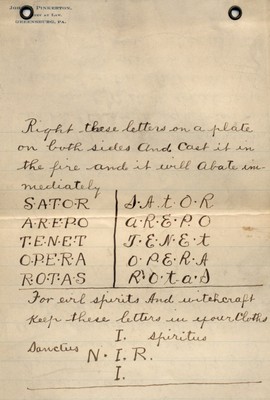 Pinkerton,
at Law.
Greensburg, Pa.
Right these letters on a plate
on both sides And Cast it in
the fire and it will Abate im-
mediately
S·A·T·O·R S·A·t·O·R
A·R·E·P·O a·R·E·P·O
T·E·N·E·T T·E·N·E·t
O·P·E·R·A O·P·E·R·A
R·O·T·A·S R·O·t·a·S
For evil spirits And witchcraft
Keep these letters in your Cloths
I. spiritus
Sanctus N·I·R.
I.